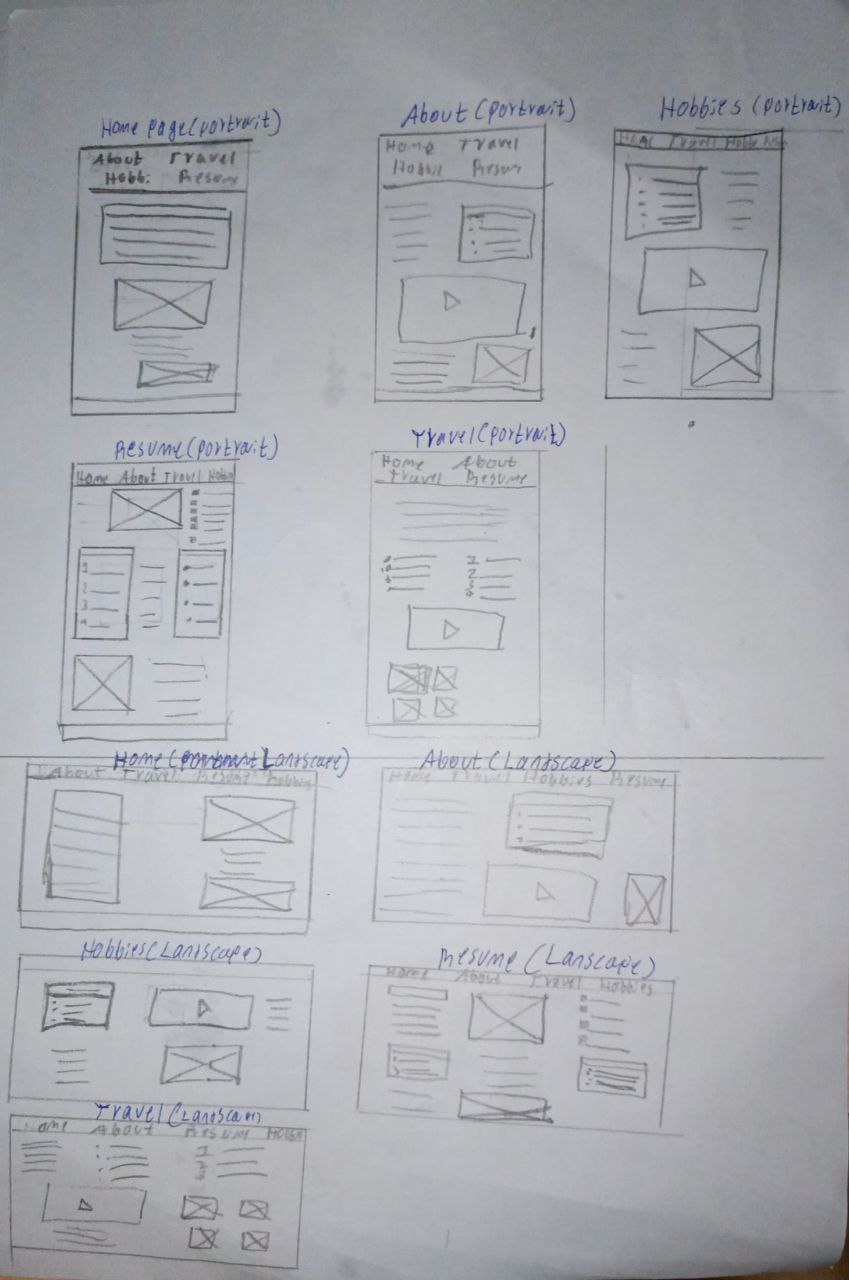 Home page(portrait)
About Travel
Hobbi: Resume
About (portrait)
Home Travel
Hobbie Resum
Hobbies (portrait)
Home Travel Hobb
Resume(portrait)
Home About Travel Hobbie
1
2
3
4
Travel(portrait)
Home About
Travel Resume
1
2
3
4
Home( Lanscape)
About Travel Resume Hobbies
About(Lanscape)
Home Travel Hobbies Resume
Hobbies(Lanscape)
Resume (Lanscape)
Home About Travel Hobbies
Travel(Lanscam)
Home About Resume
1